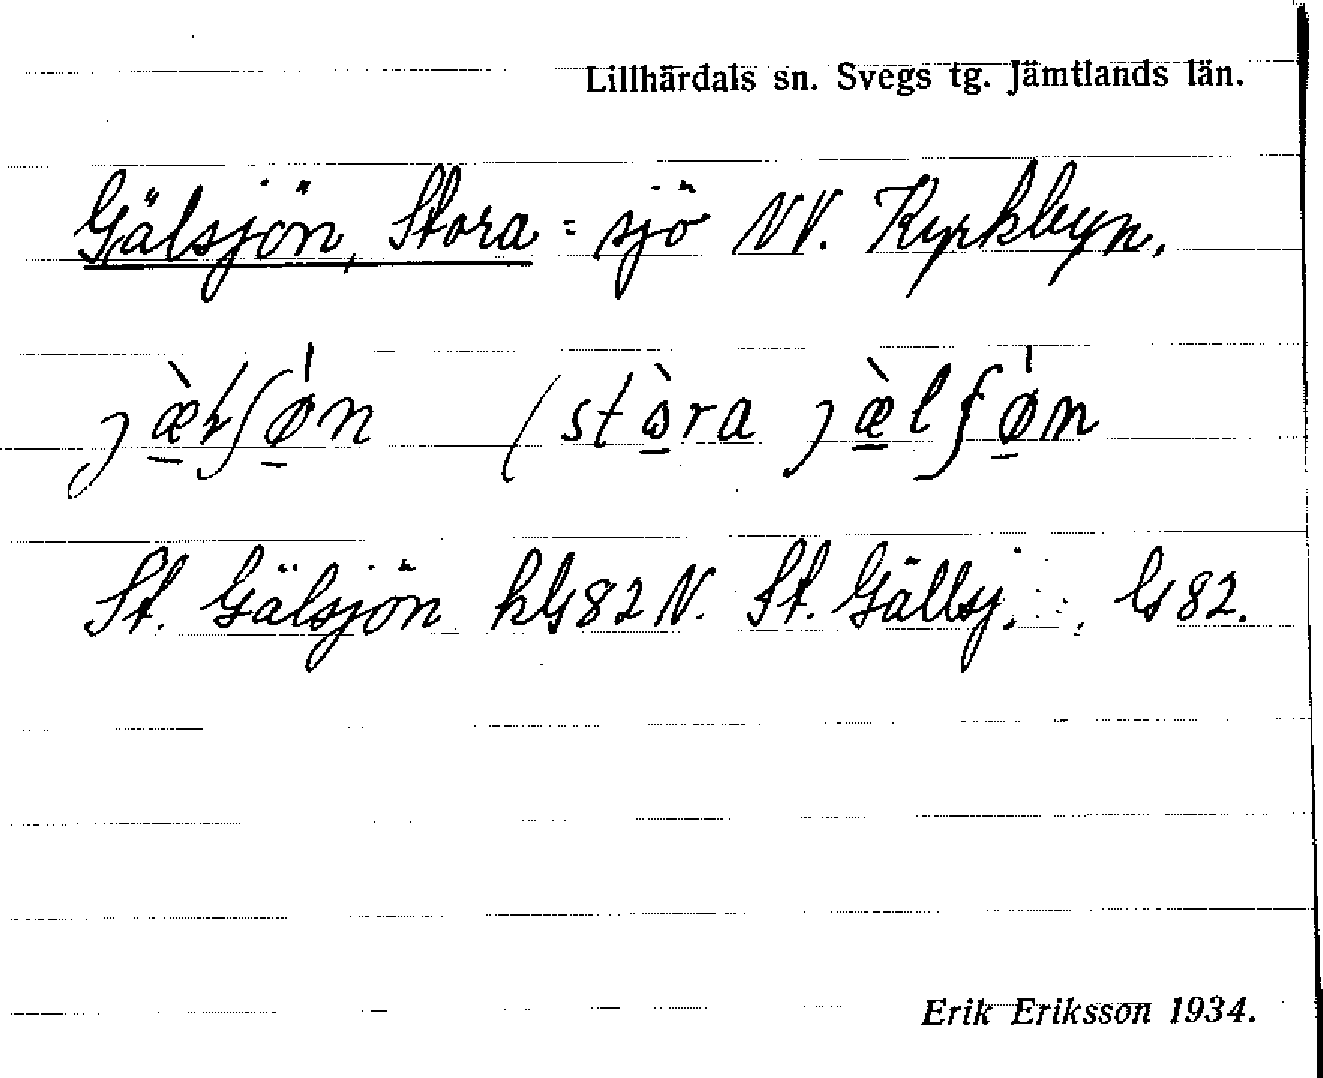 Lillhärdals sn. Svegs tg. Jämtlands län.
Gälsjön, Stora = sjö NV. Kyrkbyn.
St. Gälsjön kG82N. St. Gällsj. G82.
Erik Eriksson 1934.